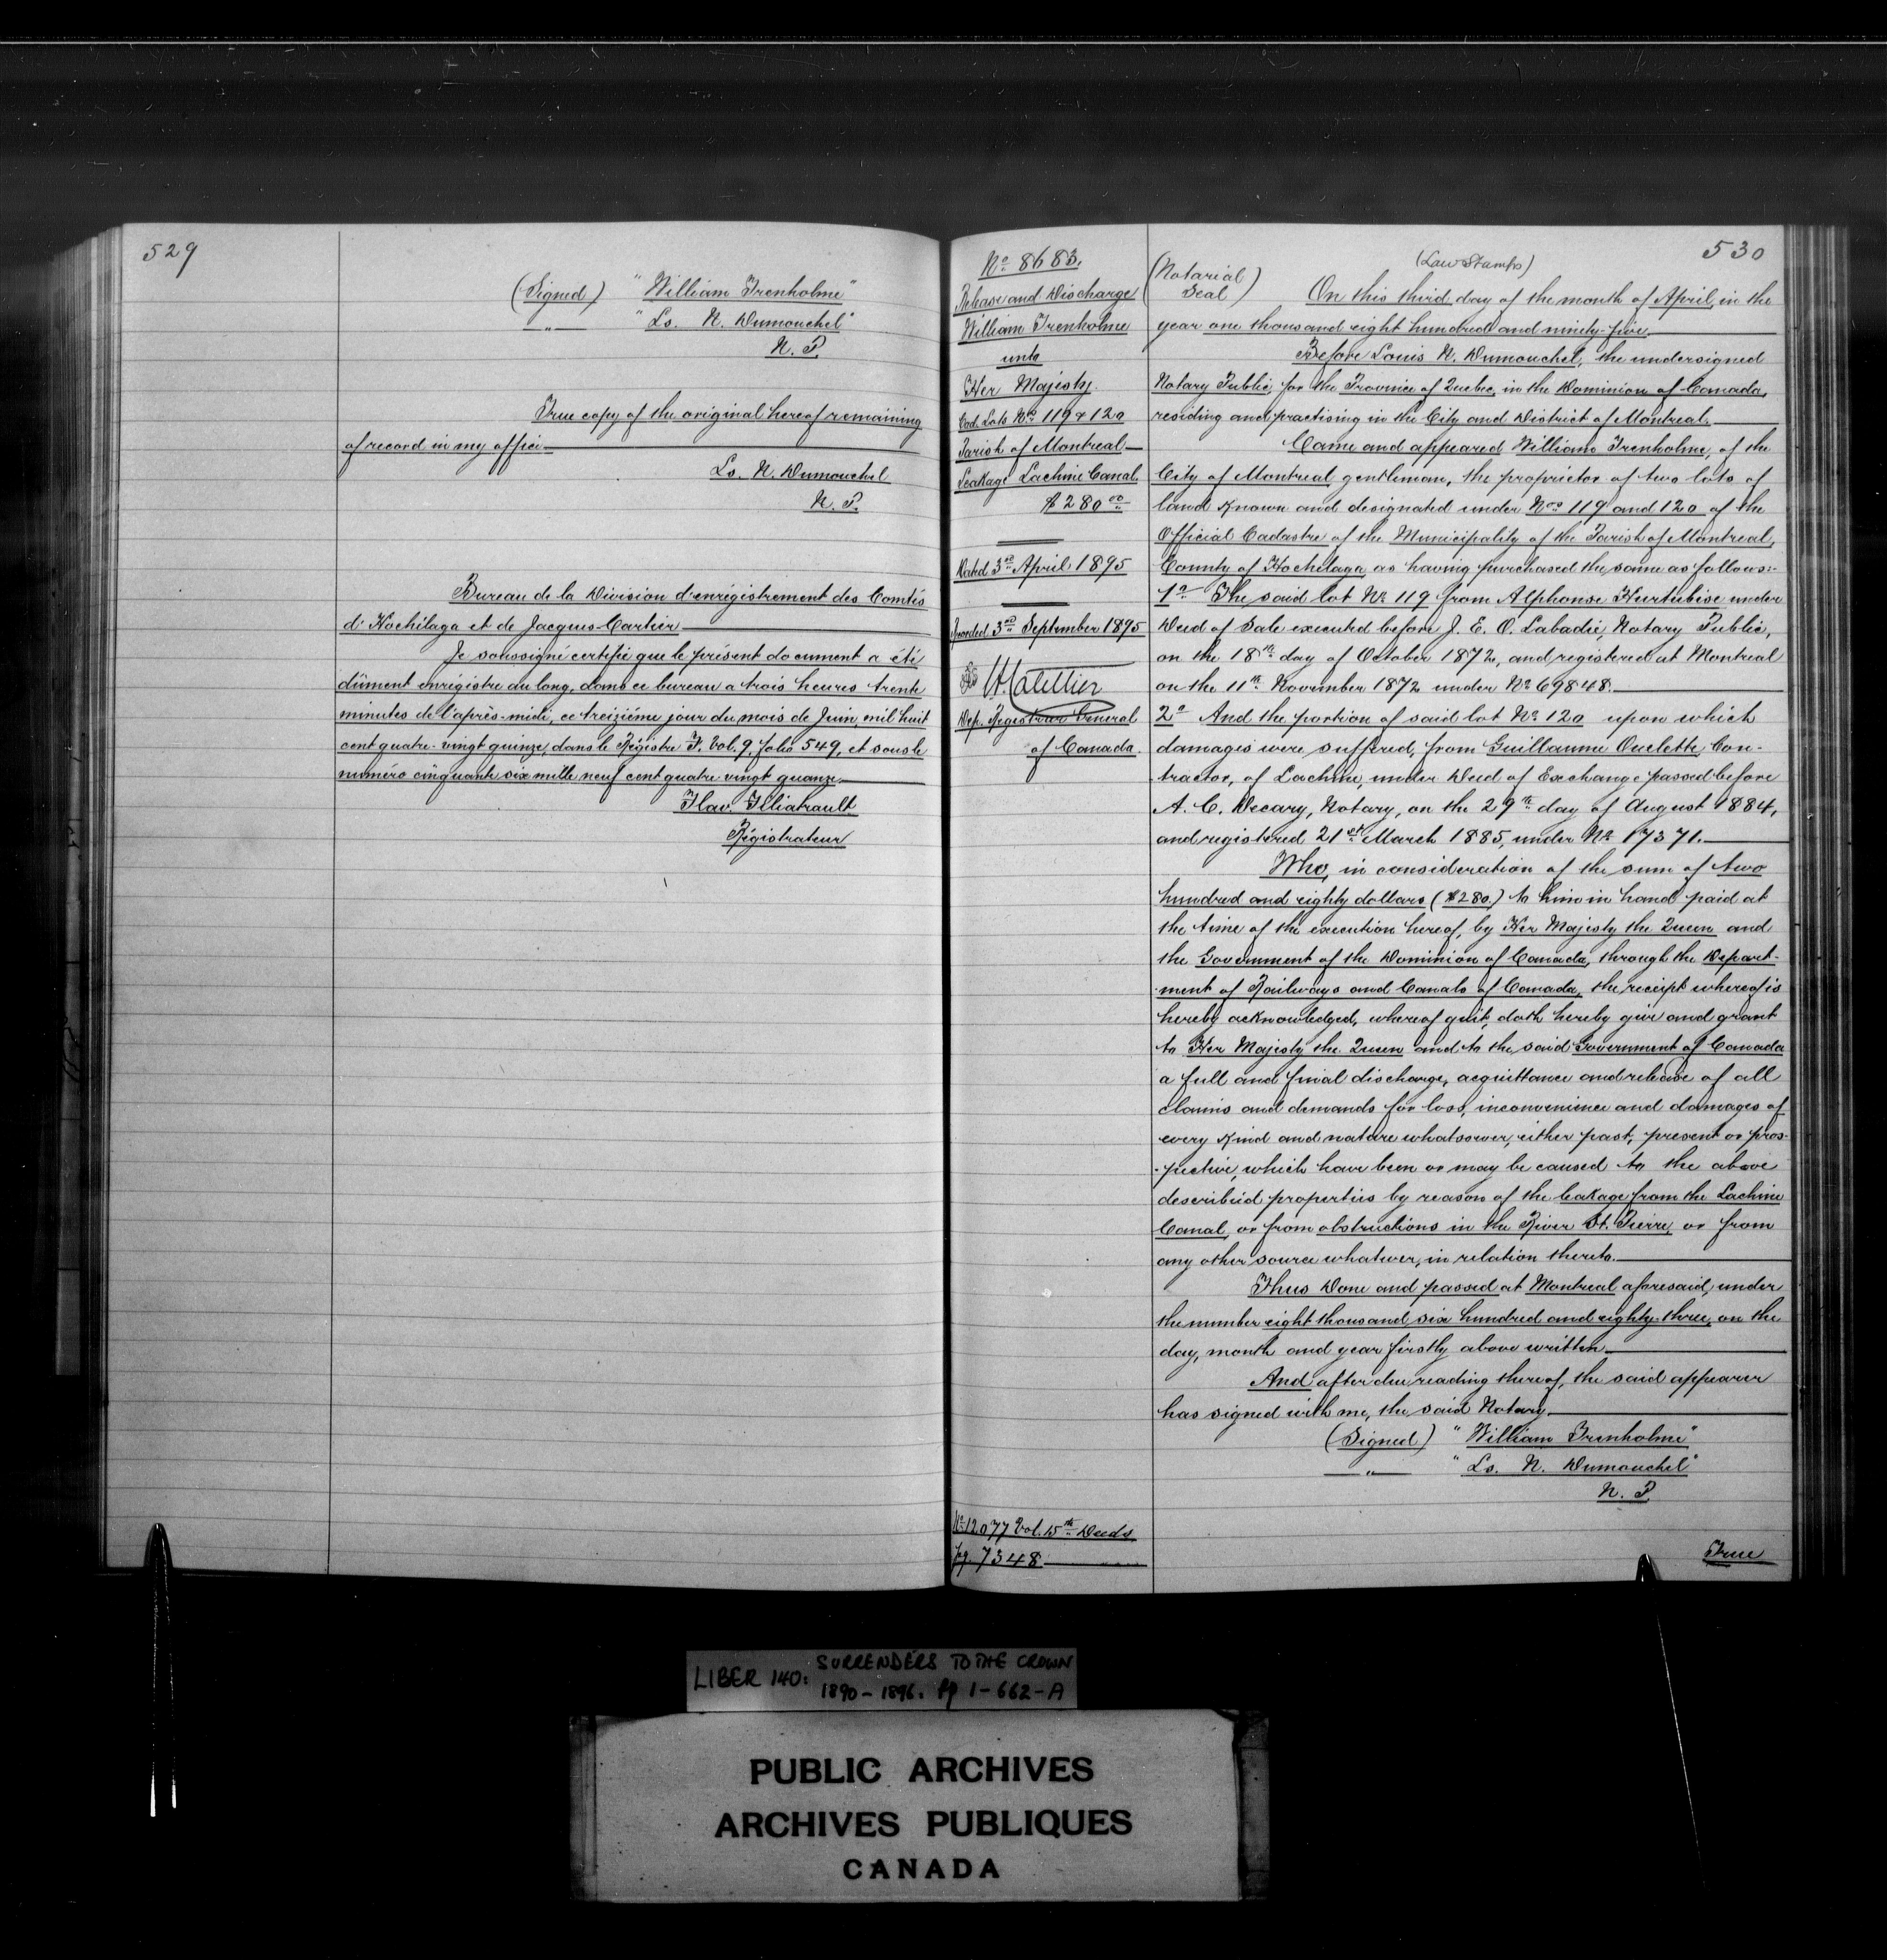 529
(Signed) "William Trenholme"
—„— "Ls. N. Dumouchel"
N. P.
True copy of the original hereof remaining
of record in my office
Ls. N. Dumouchel
N. P.
Bureau de la Division d'enrégistrement des Comtés
d'Hochelaga et de Jacques-Cartier
Je soussigné certifie que le présent document a été
dûment enrégistré au long, dans ce bureau a trois heures trente
minutes de l'après-midi, ce treizième jour du mois de Juin, mil huit
cent quatre-vingt quinze, dans le Régistre F. Vol. 9, folio 549, et sous le
numéro cinquante six mille neuf cent quatre vingt quinze
Régistrateur
No. 8683.
Release and Discharge
William Trenholme
unto
Her Majesty.
Cad. Lots Nos 119 & 120
Parish of Montreal
Leakage Lachine Canal.
$280.00
Dated 3rd April 1895
Recorded 3rd September 1895
Dep. Registrar General
of Canada.
No. 12077 Vol. 15th Deeds
pg. 7348
530
(Law Stamps)
(Notarial Seal)
On this third day of the month of April, in the
year one thousand eight hundred and ninety-five
Before Louis N. Dumouchel, the undersigned
Notary Public, for the Province of Quebec, in the Dominion of Canada,
residing and practising in the City and District of Montreal.
Came and appeared William Trenholme, of the
City of Montreal gentleman, the proprietor of two lots of
land known and designated under Nos 119 and 120 of the
Official Cadastre of the Municipality of the Parish of Montreal,
County of Hochelaga as having purchased the same as follows:-
1o The said lot No. 119 from Alphonse Hurtubise under
Deed of Sale executed before J. E. O. Labadie, Notary Public,
on the 18th day of October 1872, and registered at Montreal
on the 11th November 1872 under No. 69848.
2o And the portion of said lot No. 120 upon which
damages were suffered, from Guillaume Ouelette, Con-
tractor, of Lachine, under Deed of Exchange passed before
A. C. Decary, Notary, on the 29th day of August 1884,
and registered 21st March 1885, under No. 17371.
Who, in consideration of the sum of two
hundred and eighty dollars ($280.) to him in hand paid at
the time of the execution hereof, by Her Majesty the Queen and
the Government of the Dominion of Canada, through the Depart-
ment of Railways and Canals of Canada, the receipt whereof is
hereby acknowledged, whereof quit, doth hereby give and grant
to Her Majesty the Queen and to the said Government of Canada
a full and final discharge, acquittance and release of all
claims and demands for loss, inconvenience and damages of
every kind and nature whatsoever, either past, present or pros-
pective, which have been or may be caused to the above
described properties by reason of the leakage from the Lachine
Canal, or from obstructions in the River St. Pierre, or from
any other source whatever, in relation thereto.
Thus Done and passed at Montreal aforesaid, under
the number eight thousand six hundred and eighty-three, on the
day, month and year firstly above written
And after due reading thereof, the said appearer
has signed with me, the said Notary.
(Signed) "William Trenholme"
—„— "Ls. N. Dumouchel"
N. P.
True
LIBER 140: SURRENDERS TO THE CROWN
1890-1896. pp 1-662-A
PUBLIC ARCHIVES
ARCHIVES PUBLIQUES
CANADA